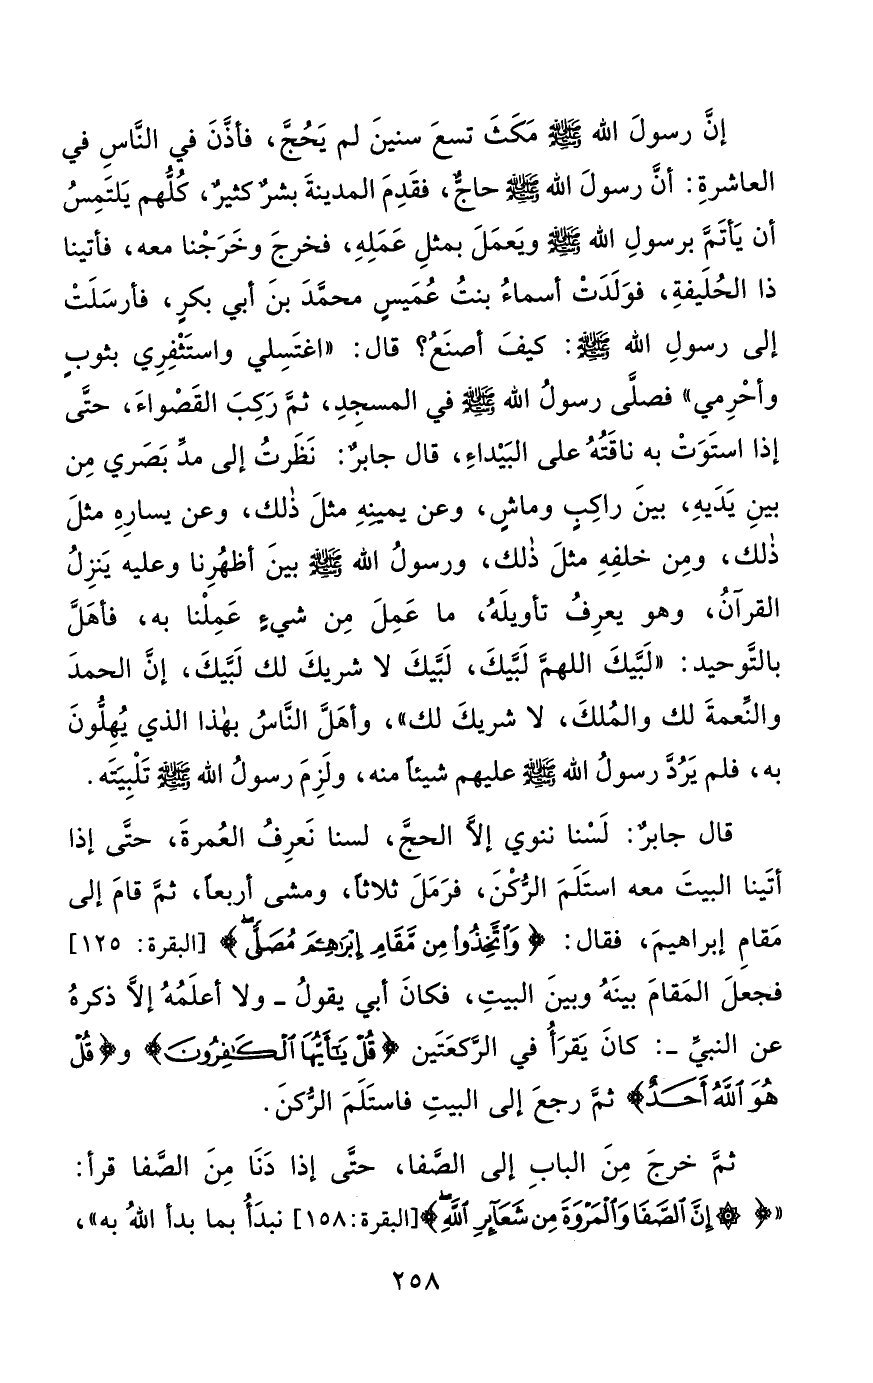 إنَّ رسولَ الله ﷺ مَكَثَ تسعَ سنينَ لم يَحُجَّ، فأذَّنَ في النَّاسِ في
العاشرةِ: أنَّ رسولَ الله ﷺ حاجٌّ، فقَدِمَ المدينةَ بشرٌ كثيرٌ، كُلُّهم يَلتَمِسُ
أن يَأتَمَّ برسولِ الله ﷺ ويَعمَلَ بمثلِ عَمَلِهِ، فخرجَ وخَرَجْنا معه، فأتينا
ذا الحُلَيفةِ، فوَلَدَتْ أسماءُ بنتُ عُمَيسٍ محمَّدَ بنَ أبي بكرٍ، فأرسَلَتْ
إلى رسولِ الله ﷺ: كيفَ أصنَعُ؟ قال: «اغتَسِلي واستَثْفِرِي بثوبٍ
وأحْرِمي» فصلَّى رسولُ الله ﷺ في المسجِدِ، ثمَّ رَكِبَ القَصْواءَ، حتَّى
إذا استَوَتْ به ناقَتُهُ على البَيْداءِ، قال جابرٌ: نَظَرتُ إلى مدِّ بَصَري مِن
بينِ يَدَيهِ، بينَ راكِبٍ وماشٍ، وعن يمينِهِ مثلَ ذٰلك، وعن يسارِهِ مثلَ
ذٰلك، ومِن خلفِهِ مثلَ ذٰلك، ورسولُ الله ﷺ بينَ أظهُرِنا وعليه يَنزِلُ
القرآنُ، وهو يعرِفُ تأويلَهُ، ما عَمِلَ مِن شيءٍ عَمِلْنا به، فأهَلَّ
بالتَّوحيد: «لَبَّيكَ اللهمَّ لَبَّيكَ، لَبَّيكَ لا شريكَ لك لَبَّيكَ، إنَّ الحمدَ
والنِّعمةَ لك والمُلكَ، لا شريكَ لك»، وأهَلَّ النَّاسُ بهٰذا الذي يُهِلُّونَ
به، فلم يَرُدَّ رسولُ الله ﷺ عليهم شيئاً منه، ولَزِمَ رسولُ الله ﷺ تَلْبِيَتَه.
قال جابرٌ: لَسْنا ننوي إلاَّ الحجَّ، لسنا نَعرِفُ العُمرةَ، حتَّى إذا
أتَينا البيتَ معه استَلَمَ الرُّكْنَ، فرَمَلَ ثلاثاً، ومشى أربعاً، ثمَّ قامَ إلى
مَقامِ إبراهيمَ، فقال: ﴿وَٱتَّخِذُوا۟ مِن مَّقَامِ إِبْرَٰهِـۧمَ مُصَلًّى﴾ [البقرة: ١٢٥]
فجعلَ المَقامَ بينَهُ وبينَ البيتِ، فكانَ أبي يقولُ ـ ولا أعلَمُهُ إلاَّ ذكرهُ
عن النبيِّ ـ: كانَ يَقرَأُ في الرَّكعَتَين ﴿قُلْ يَـٰٓأَيُّهَا ٱلْكَـٰفِرُونَ﴾ و﴿قُلْ
هُوَ ٱللَّهُ أَحَدٌ﴾ ثمَّ رجعَ إلى البيتِ فاستَلَمَ الرُّكنَ.
ثمَّ خرجَ مِنَ البابِ إلى الصَّفا، حتَّى إذا دَنَا مِنَ الصَّفا قرأ:
«﴿ ۞ إِنَّ ٱلصَّفَا وَٱلْمَرْوَةَ مِن شَعَآئِرِ ٱللَّهِ﴾[البقرة:١٥٨] نبدَأُ بما بدأ اللهُ به»،
٢٥٨